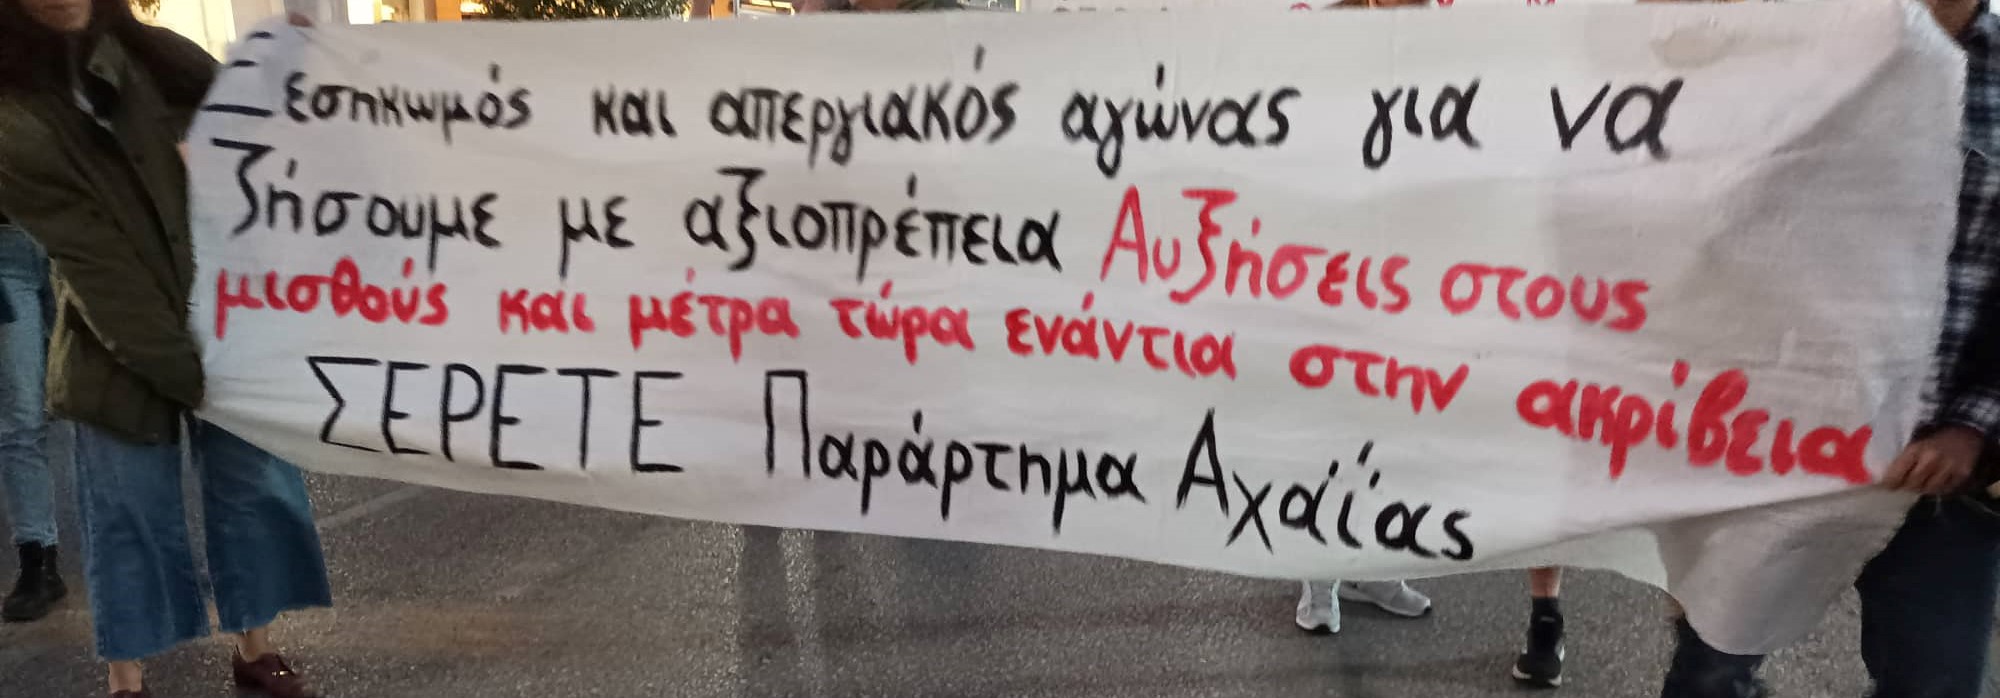 Ξεσηκωμός και απεργιακός αγώνας για να
ζήσουμε με αξιοπρέπεια Αυξήσεις στους
μισθούς και μέτρα τώρα ενάντια στην ακρίβεια
ΣΕΡΕΤΕ Παράρτημα Αχάΐας